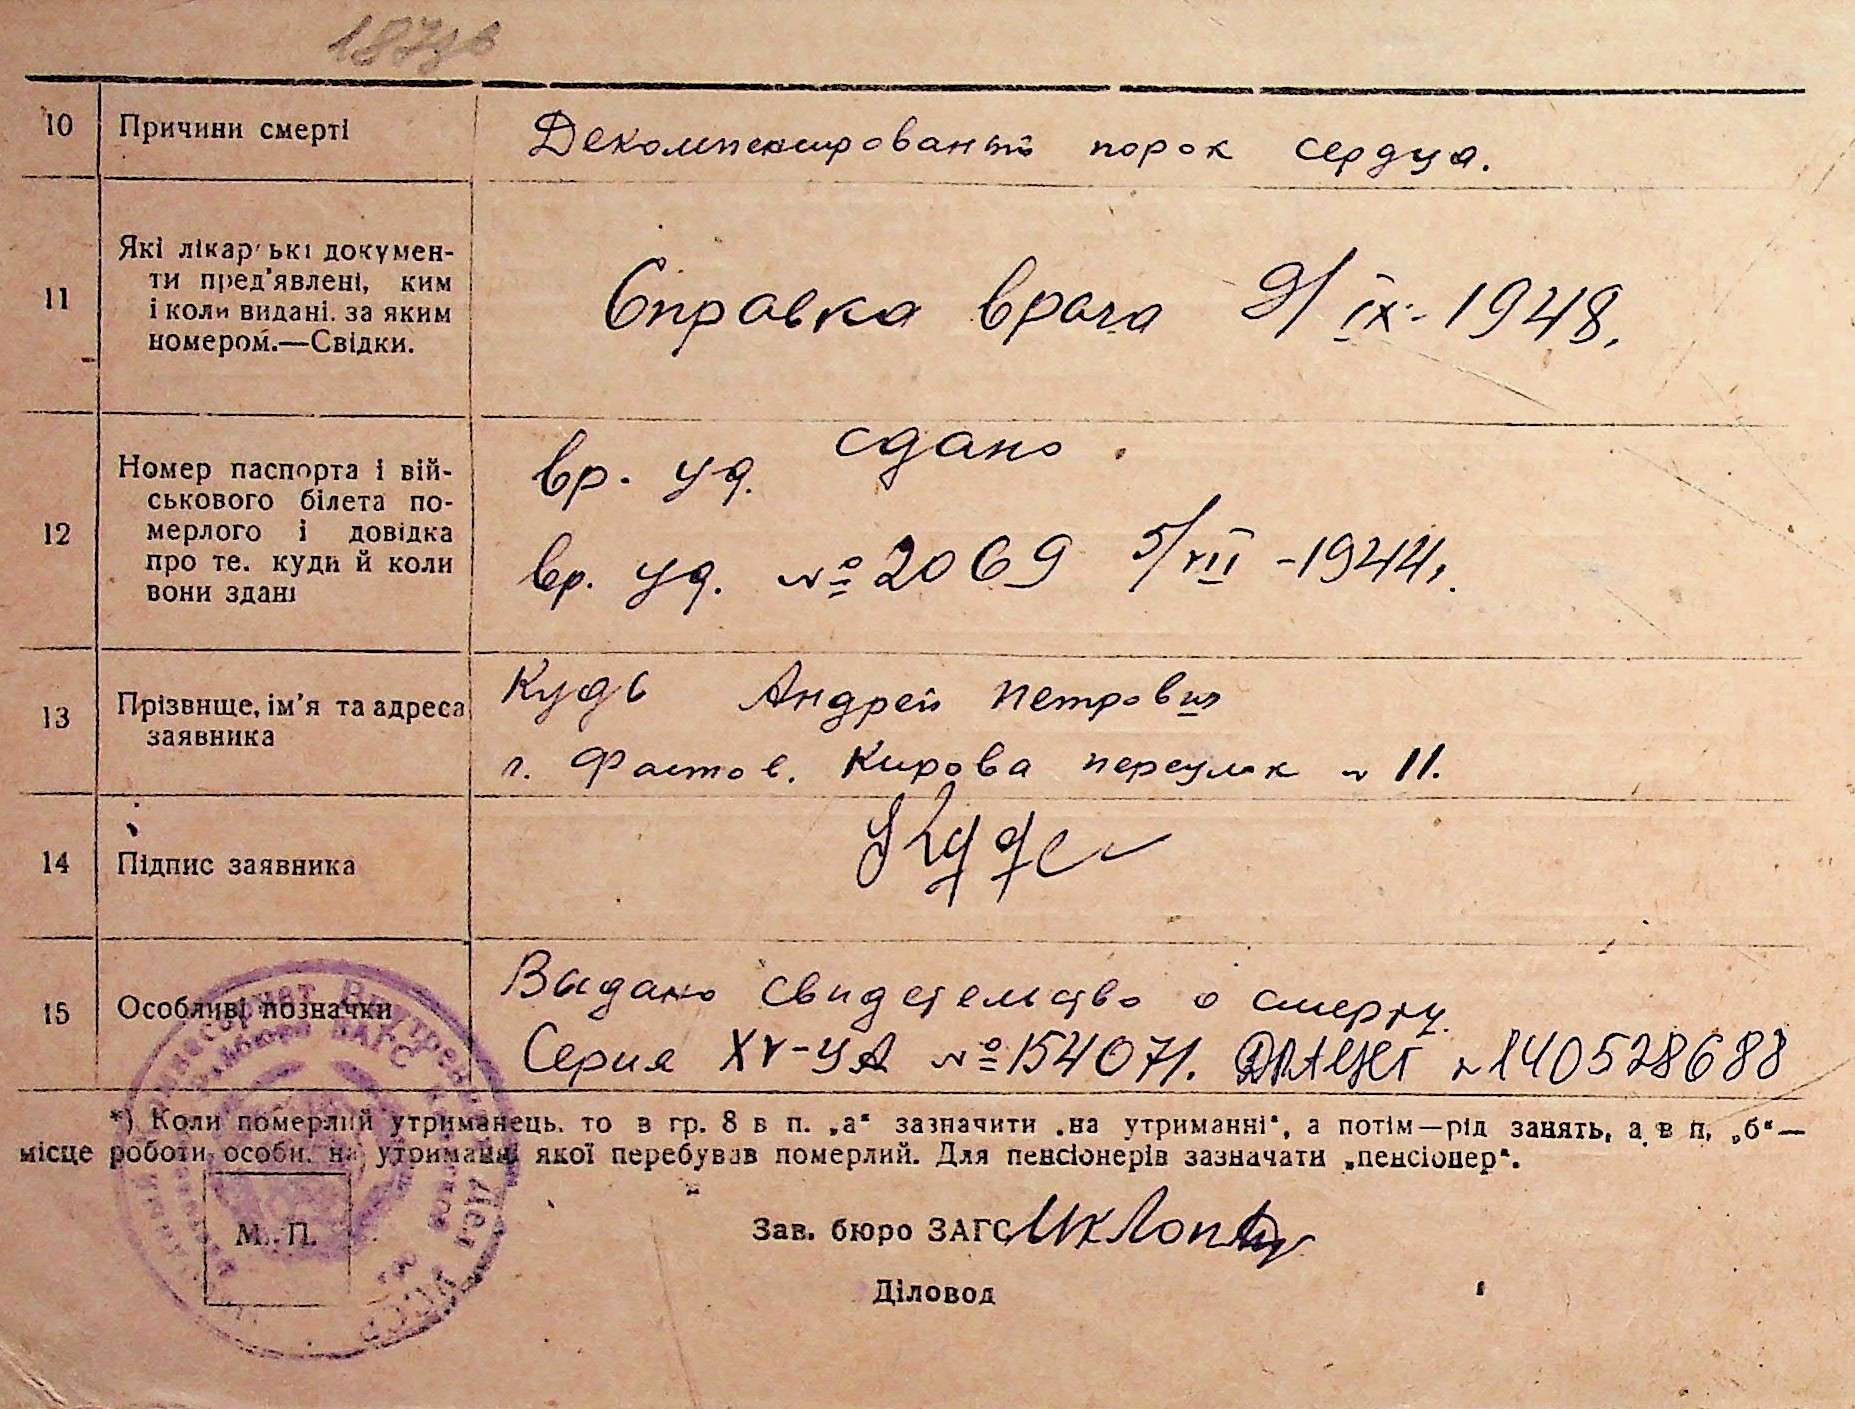 10 Причини смерті Декомпенсированый порок сердца.
11 Які лікарські докумен-
ти пред'явлені, ким
і коли видані. за яким
номером.—Свідки.
Справка врача 9/IX-1948.
12 Номер паспорта і вій-
ськового білета по-
мерлого і довідка
про те. куди й коли
вони здані
вр. уд. сдано.
вр. уд. №2069 5/VII-1944.
13 Прізвище, ім'я та адреса
заявника
Кудь Андрей Петрович
г. Фастов. Кирова переулок № 11.
14 Підпис заявника
15 Особливі позначки
Выдано свидетельство о смерти.
Серия XV-УА №154071. 140528688
*) Коли померлий утриманець. то в гр. 8 в п. „а“ зазначити „на утриманні“, а потім—рід занять, а в п. „б“—
місце роботи особи, на утриманні якої перебував померлий. Для пенсіонерів зазначати „пенсіонер“.
М. П.
Зав. бюро ЗАГС
Діловод